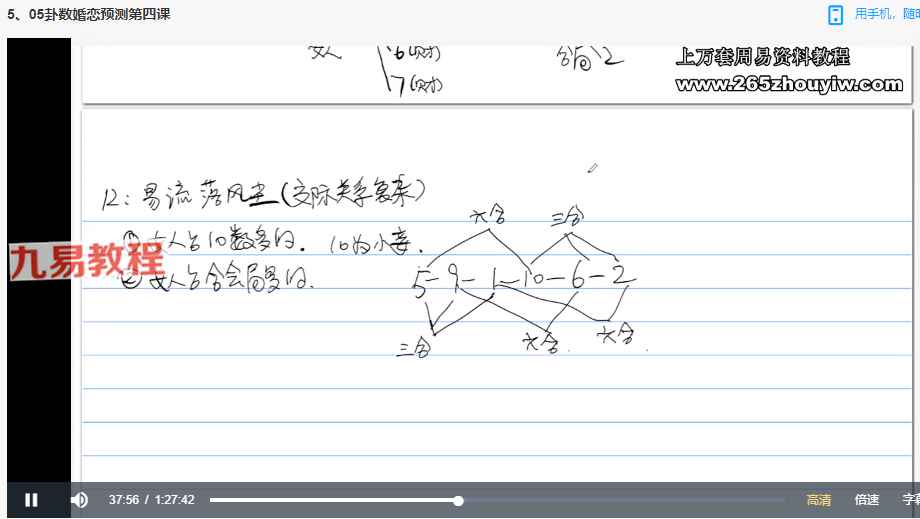 5、05卦数婚恋预测第四课
用手机，随时
女人 6(财) 合局12
上万套周易资料教程
7(财)
www.265zhouyiw.com
12：易流落风尘(交际关系复杂)
六合 三合
① 女人占10数多的. 10为小妾.
九易教程
② 女人占合会局多的.
5-9-1-10-6-2
三合 六合. 六合.
37:56 / 1:27:42 高清 倍速 字幕